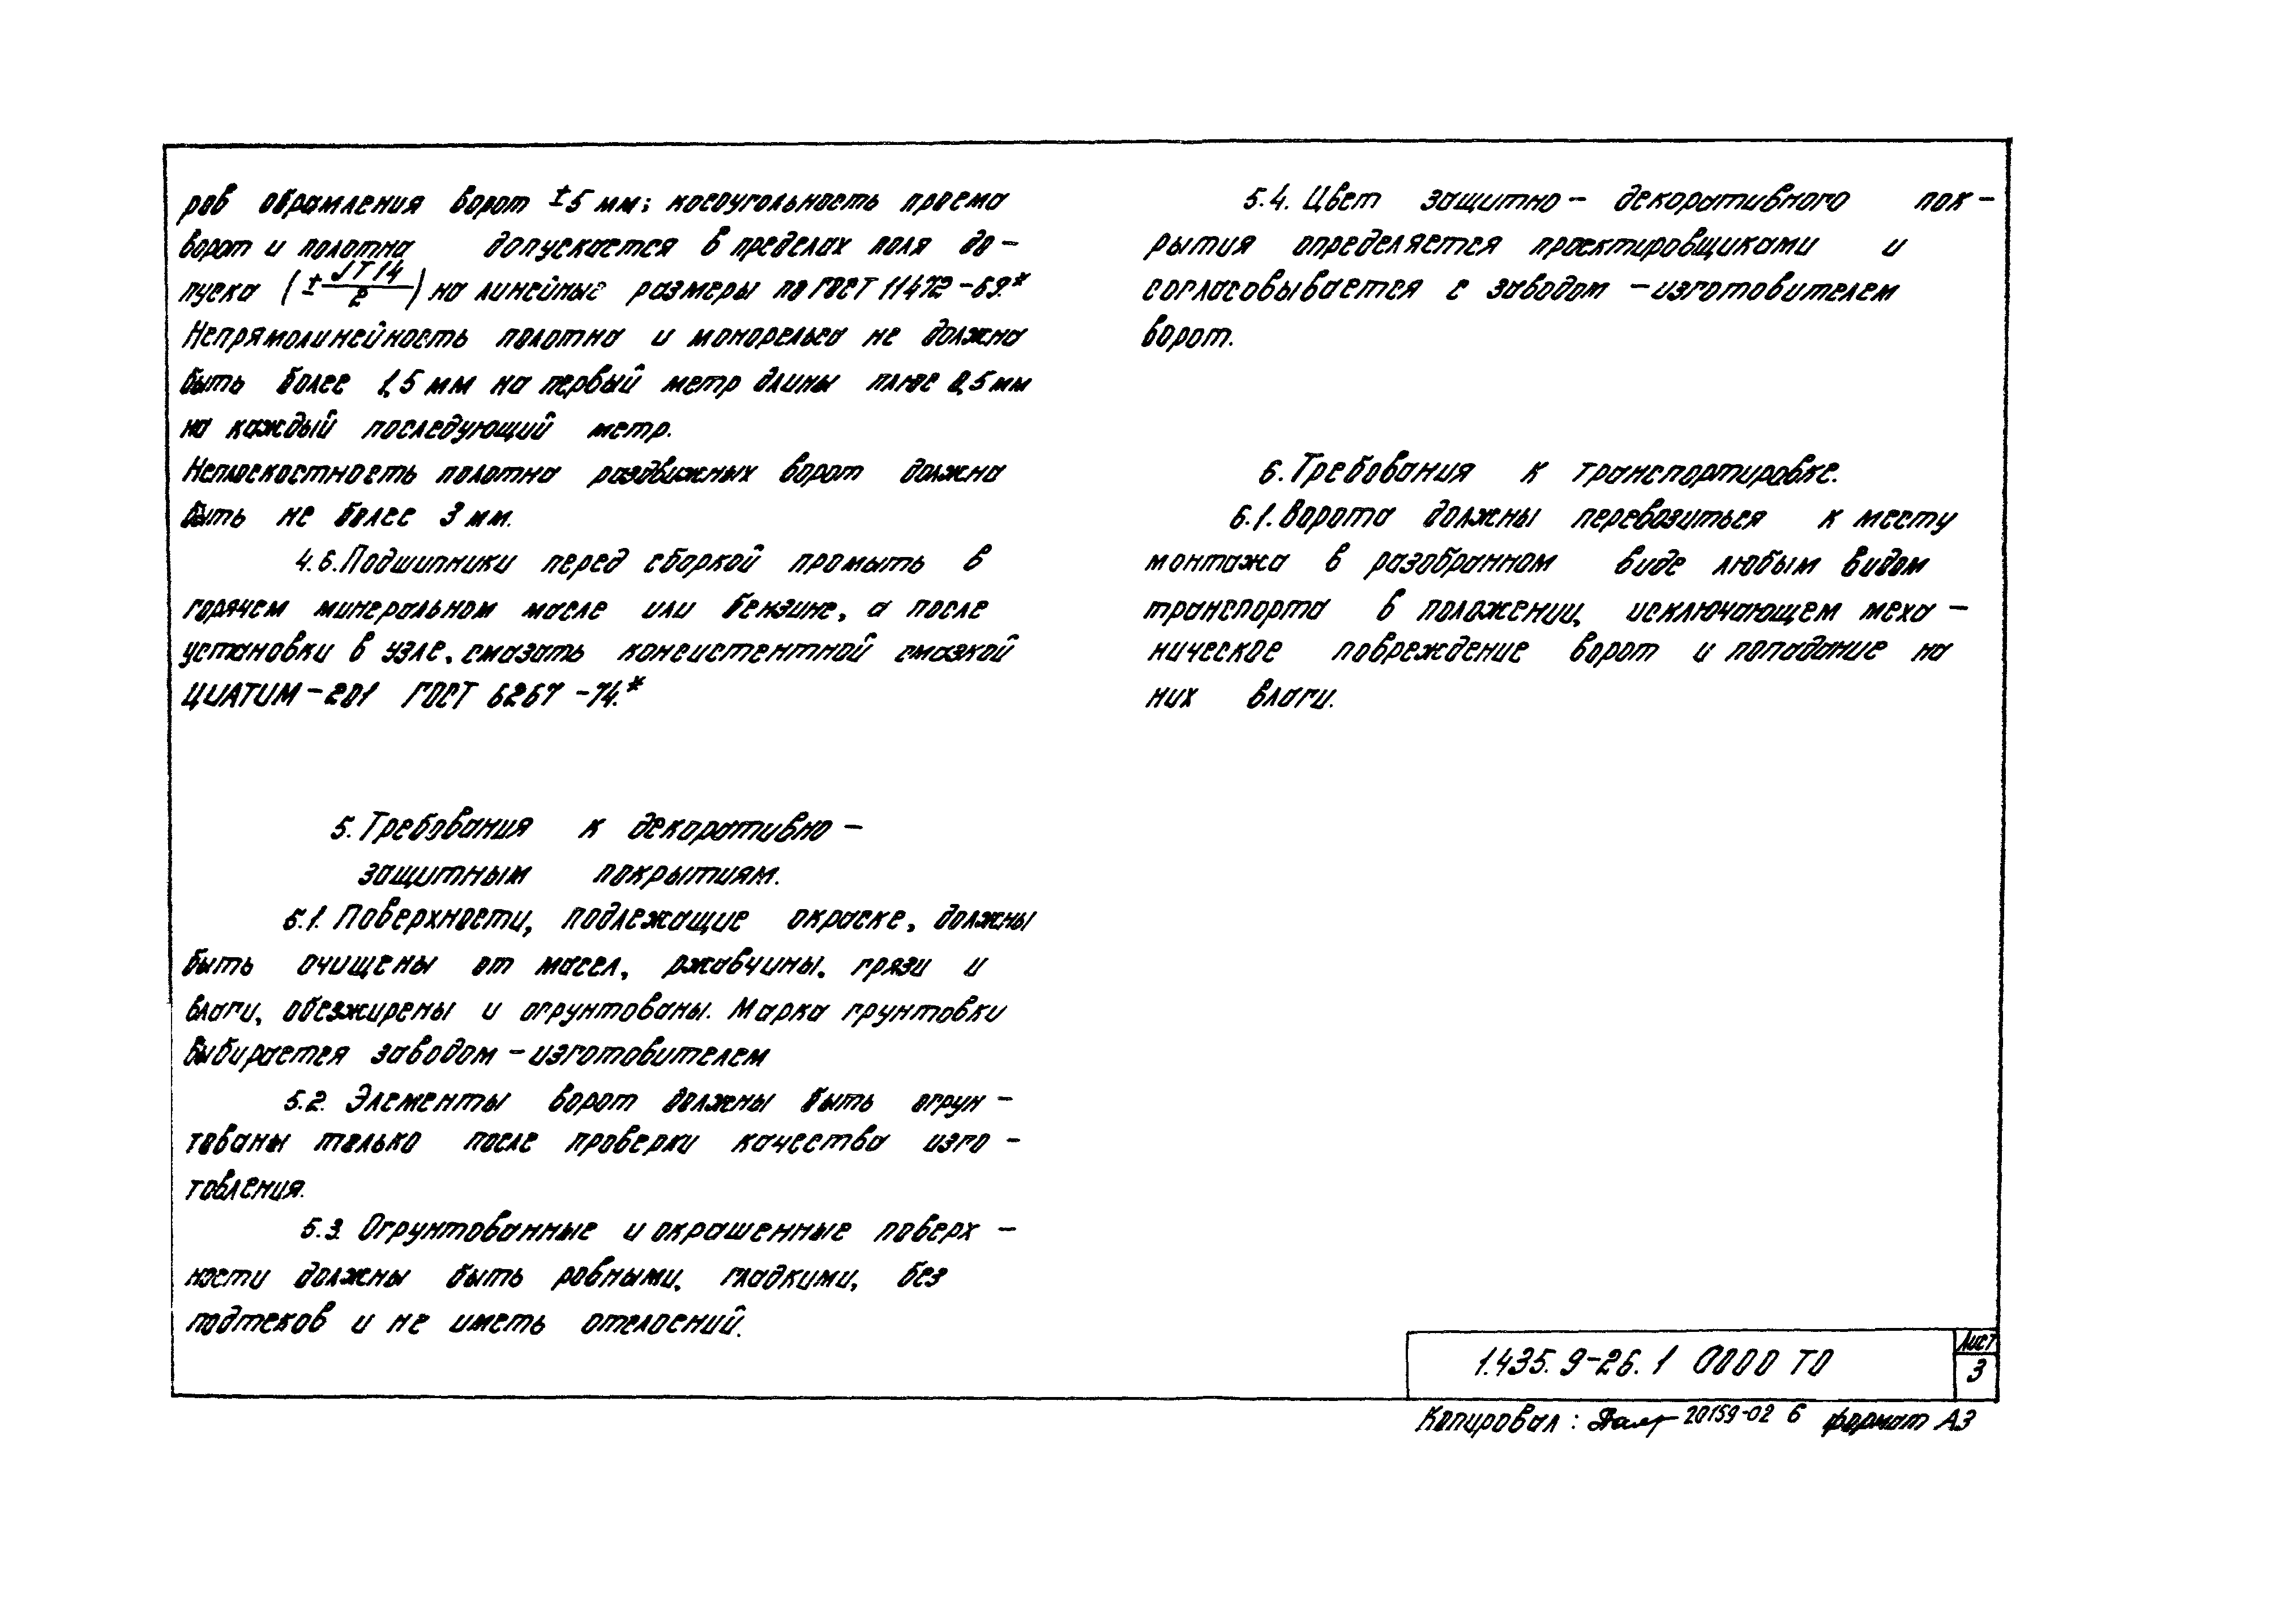 ров обрамления ворот ±5 мм; косоугольность проема
ворот и полотна допускается в пределах поля до-
пуска (± JT14/2) на линейные размеры по ГОСТ 11472-69.*
Непрямолинейность полотна и монорельса не должна
быть более 1,5 мм на первый метр длины плюс 0,5 мм
на каждый последующий метр.
Неплоскостность полотна раздвижных ворот должна
быть не более 3 мм.
4.6. Подшипники перед сборкой промыть в
горячем минеральном масле или бензине, а после
установки в узле, смазать консистентной смазкой
ЦИАТИМ-201 ГОСТ 6267-74.*
5. Требования к декоративно-
защитным покрытиям.
5.1. Поверхности, подлежащие окраске, должны
быть очищены от масел, ржавчины, грязи и
влаги, обезжирены и огрунтованы. Марка грунтовки
выбирается заводом-изготовителем
5.2. Элементы ворот должны быть огрун-
тованы только после проверки качества изго-
товления.
5.3. Огрунтованные и окрашенные поверх-
ности должны быть ровными, гладкими, без
подтеков и не иметь отслоений.
5.4. Цвет защитно-декоративного пок-
рытия определяется проектировщиками и
согласовывается с заводом-изготовителем
ворот.
6. Требования к транспортировке.
6.1. Ворота должны перевозиться к месту
монтажа в разобранном виде любым видом
транспорта в положении, исключающем меха-
ническое повреждение ворот и попадание на
них влаги.
1.435.9-26.1 0000 ТО
Лист
3
Копировал: 20159-02 6 формат А3